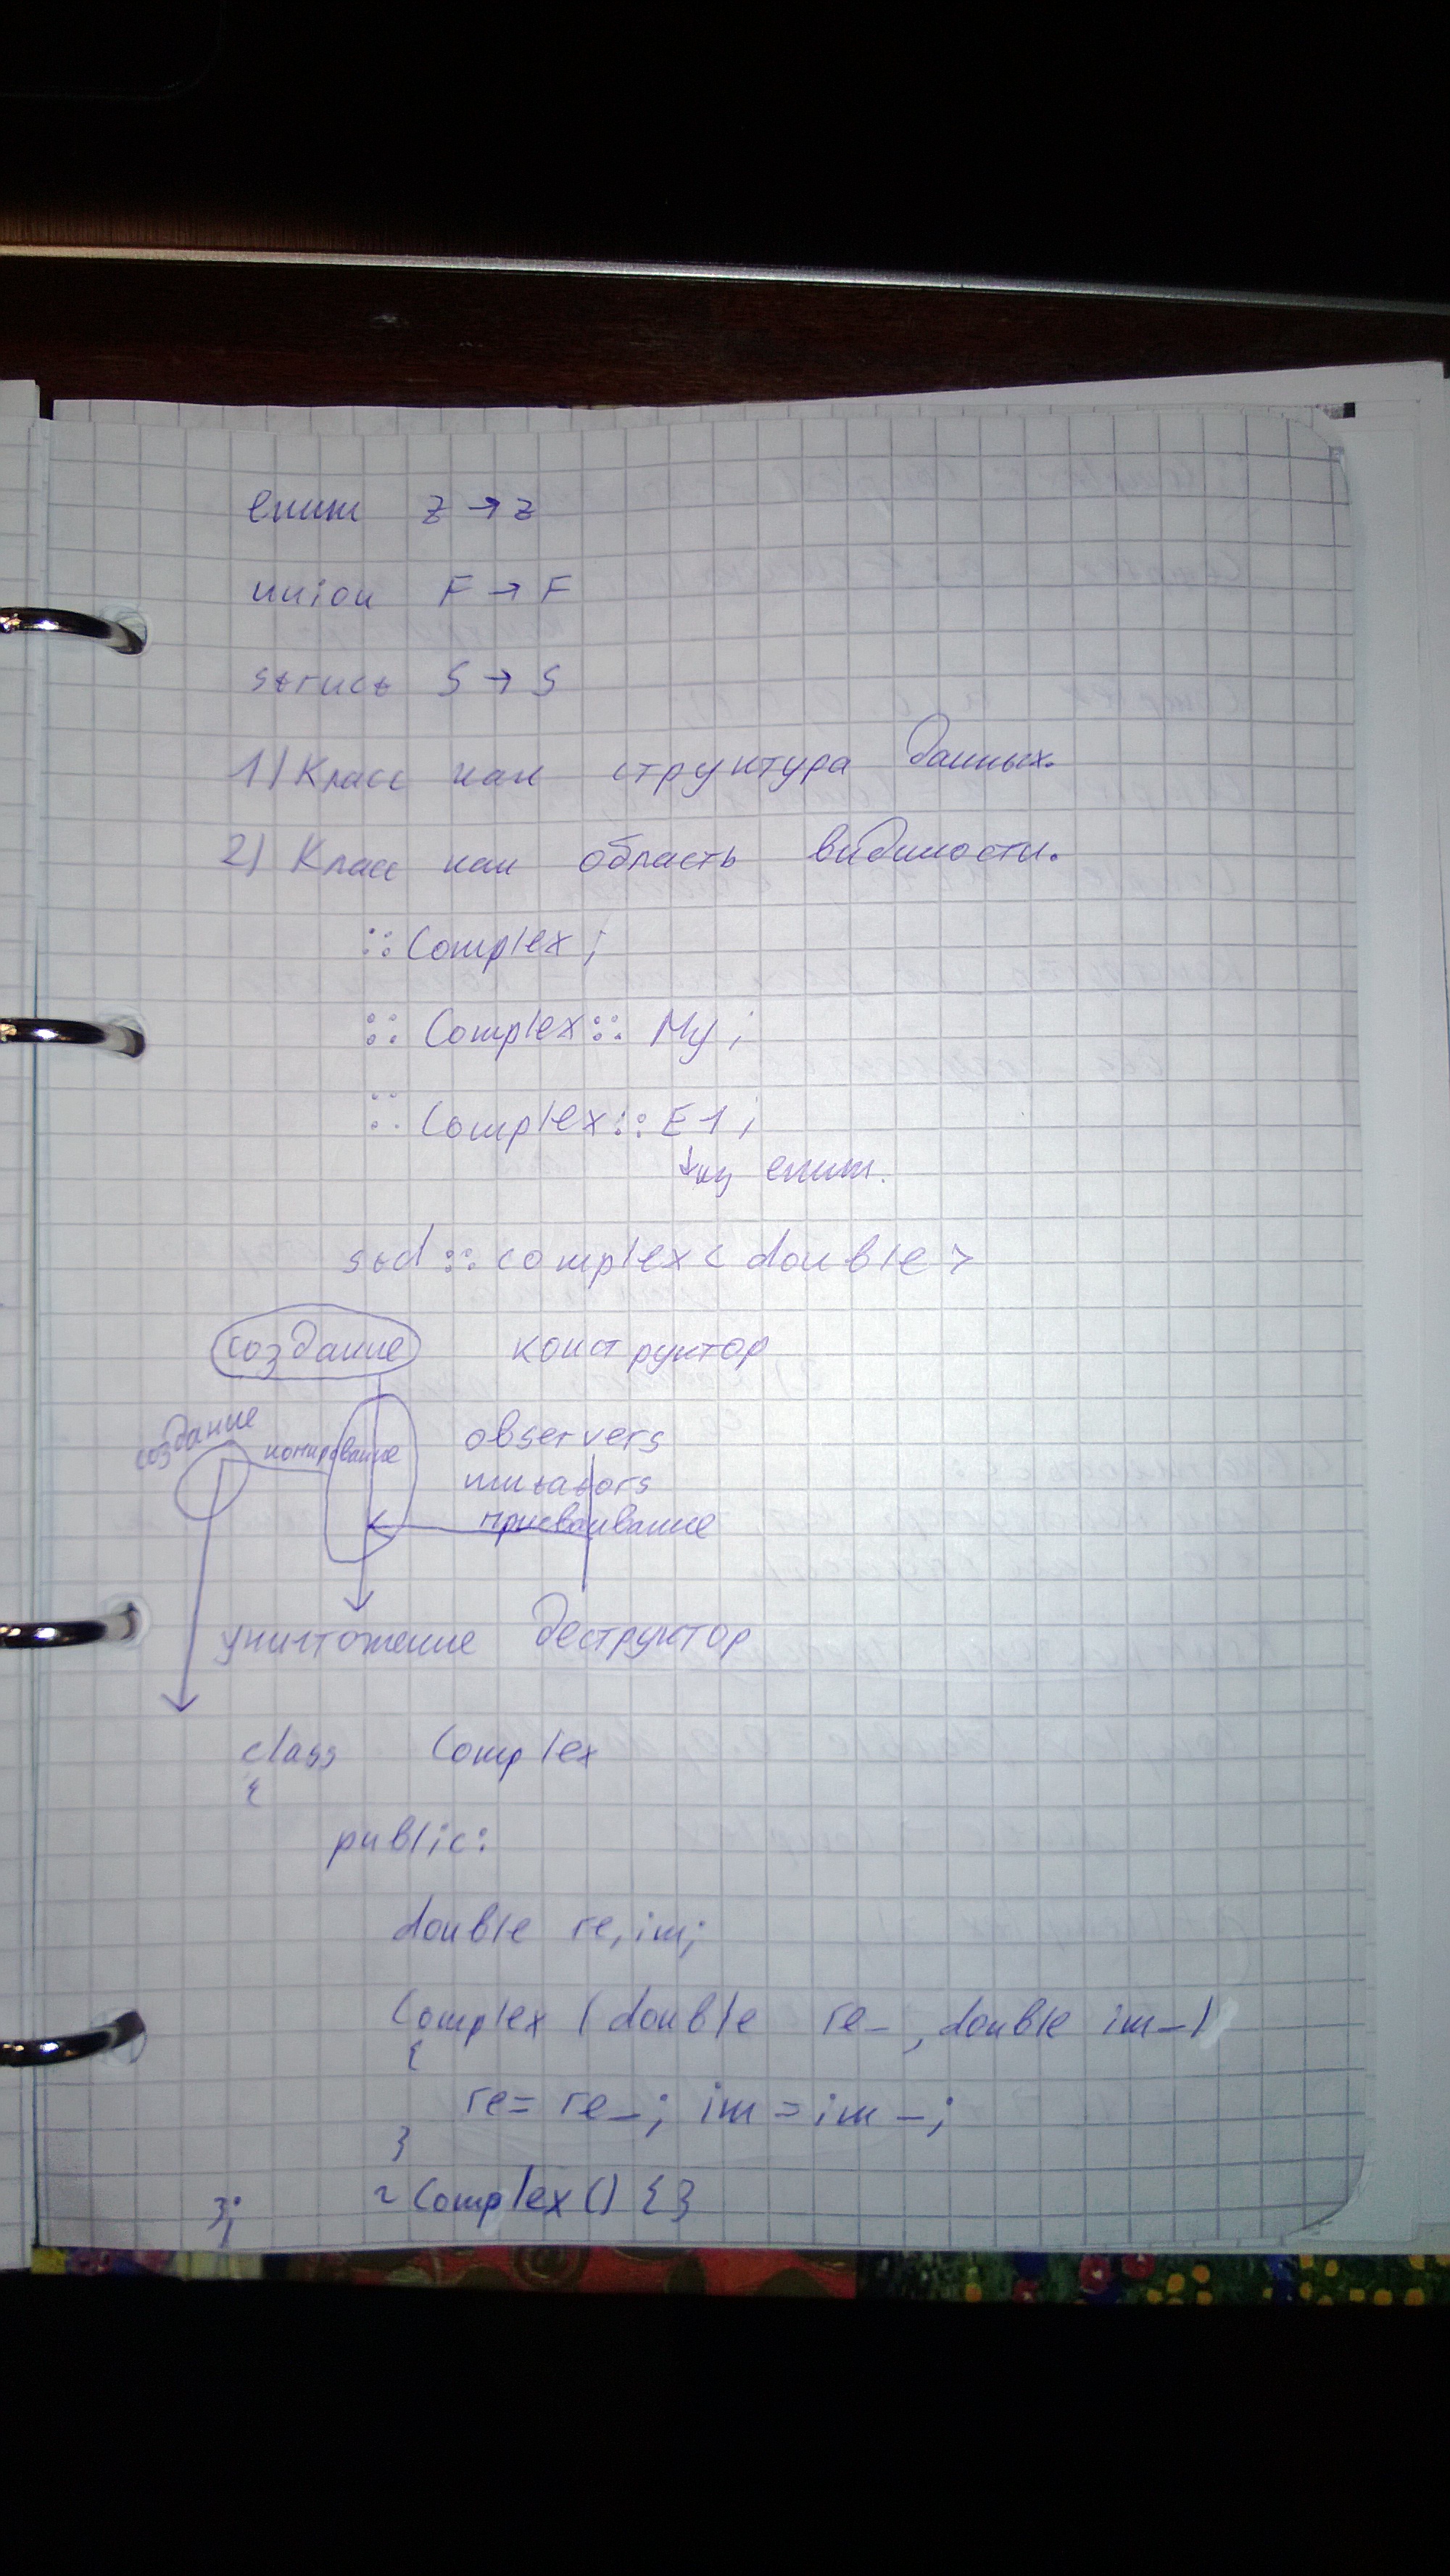 enum z → z
union F → F
struct S → S
1) Класс как структура данных.
2) Класс как область видимости.
::Complex;
::Complex::My;
::Complex::E1;
↓из enum.
std::complex<double>
создание конструктор
создание копирование observers
mutators
присваивание
уничтожение деструктор
class Complex
{
public:
double re, im;
Complex (double re_, double im_)
{
re = re_; im = im_;
}
~Complex() {}
};